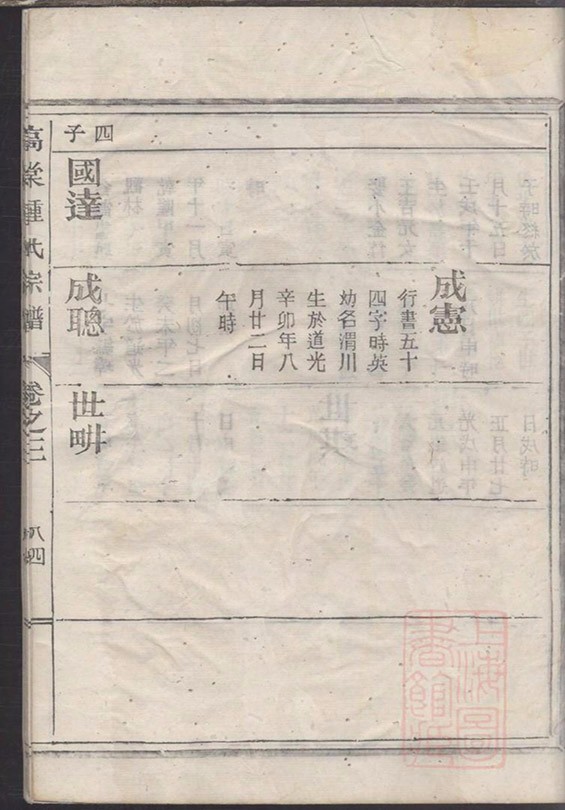 成憲
行書五十
四字時英
幼名渭川
生於道光
辛卯年八
月廿二日
午時
四子
國達
成聰
世畊
高棠鍾氏宗譜
卷之三
八四
上海圖
書館藏